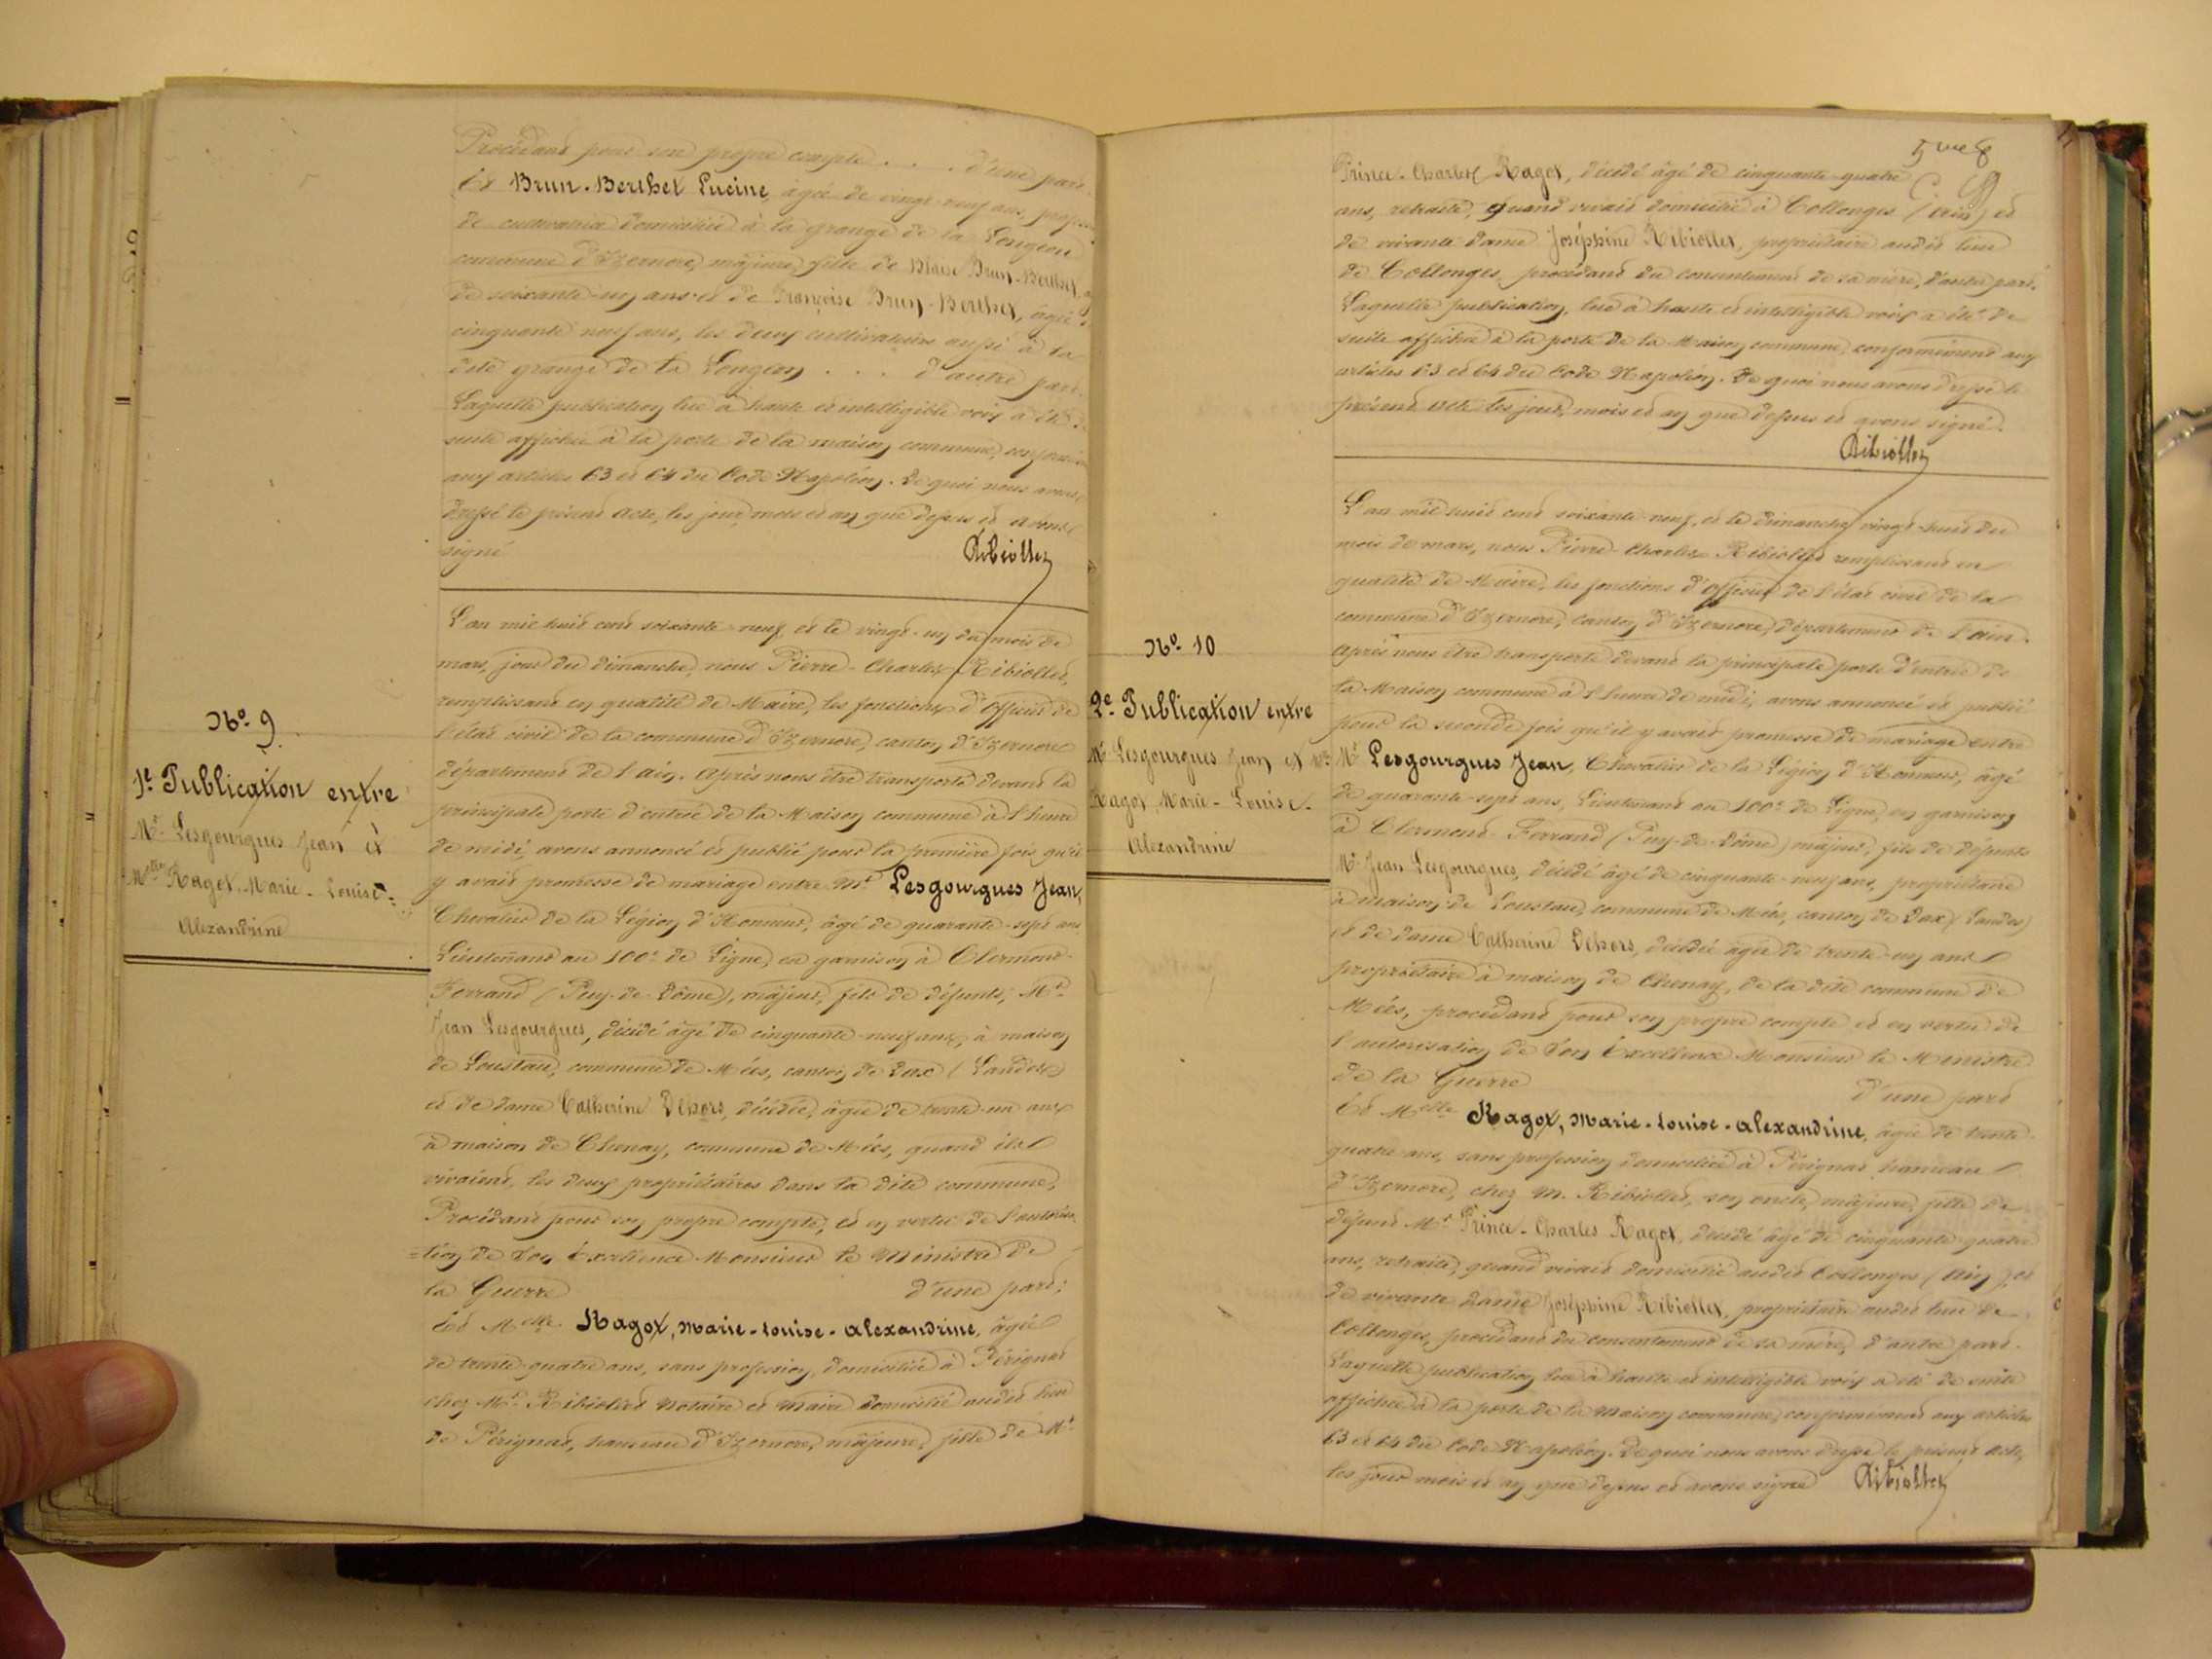 Procédant pour son propre compte . . . . d'une part.
Et Brun-Berthet Lucine, âgée de vingt-neuf ans, profession
de cultivatrice domiciliée à la grange de la Longeon
commune d'Izernore, majeure, fille de Blaise Brun-Berthet,
de soixante-un ans et de Françoise Brun-Berthet, âgée
cinquante neuf ans, les deux cultivateurs aussi à la
dite grange de la Longeon . . . d'autre part.
Laquelle publication lue à haute et intelligible voix a été de
suite affichée à la porte de la maison commune,
aux articles 63 et 64 du Code Napoléon. De quoi nous avons
dressé le présent acte, les jour, mois et an que dessus et avons
signé
Ribiollet
No. 9.
1e. Publication entre
Mr. Lesgourgues Jean et
Melle Ragot Marie-Louise=
Alexandrine
L'an mil huit cent soixante-neuf et le vingt-un du mois de
mars, jour du dimanche, nous Pierre-Charles Ribiollet,
remplissant en qualité de Maire, les fonctions d'Officier de
l'état civil de la commune d'Izernore, canton d'Izernore
département de l'Ain. Après nous être transporté devant la
principale porte d'entrée de la Maison commune à l'heure
de midi, avons annoncé et publié pour la première fois qu'il
y avait promesse de mariage entre Mr. Lesgourgues Jean,
Chevalier de la Légion d'Honneur, âgé de quarante-sept ans
Lieutenant au 100e. de Ligne, en garnison à Clermont-
Ferrand (Puy-de-Dôme), majeur, fils de défunts, Mr.
Jean Lesgourgues, décédé âgé de cinquante-neuf ans, à maison
de Loustau, commune de Mées, canton de Dax (Landes)
et de dame Catherine Dehors, décédée, âgée de trente-un ans
à maison de Chenay, commune de Mées, quand ils
vivaient, les deux propriétaires dans la dite commune,
Procédant pour son propre compte, et en vertu de l'autorisa
=tion de Son Excellence Monsieur le Ministre de
la Guerre d'une part;
Et Melle. Ragot, Marie-Louise-Alexandrine, âgée
de trente-quatre ans, sans profession, domiciliée à Pérignat
chez Mr. Ribiollet Notaire et Maire domicilié audit lieu
de Pérignat, hameau d'Izernore, majeure, fille de Mr.
5me 8
Prince-Charles Ragot, décédé âgé de cinquante-quatre
ans, retraité, quand vivait domicilié à Collonges (Ain) et
de vivante dame Joséphine Ribiollet, propriétaire audit lieu
de Collonges, procédant du consentement de sa mère, d'autre part.
Laquelle publication, lue à haute et intelligible voix a été de
suite affichée à la porte de la Maison commune, conformément aux
articles 63 et 64 du Code Napoléon. De quoi nous avons dressé le
présent acte les jour, mois et an que dessus et avons signé.
Ribiollet
No. 10
2e. Publication entre
Mr. Lesgourgues Jean et
Ragot Marie-Louise-
Alexandrine
L'an mil huit cent soixante-neuf, et le dimanche vingt-huit du
mois de mars, nous Pierre-Charles Ribiollet remplissant en
qualité de Maire, les fonctions d'Officier de l'état civil de la
commune d'Izernore, canton d'Izernore, département de l'Ain.
Après nous être transporté devant la principale porte d'entrée de
la Maison commune à l'heure de midi, avons annoncé et publié
pour la seconde fois qu'il y avait promesse de mariage entre
Mr. Lesgourgues Jean, Chevalier de la Légion d'Honneur, âgé
de quarante-sept ans, Lieutenant au 100e. de Ligne, en garnison
à Clermont-Ferrand (Puy-de-Dôme) majeur, fils de défunts
Mr. Jean Lesgourgues, décédé âgé de cinquante-neuf ans, propriétaire
à maison de Loustau, commune de Mées, canton de Dax (Landes)
et de dame Catherine Dehors, décédée âgée de trente-un ans
propriétaire à maison de Chenay, de la dite commune de
Mées, procédant pour son propre compte et en vertu de
l'autorisation de Son Excellence Monsieur le Ministre
de la Guerre d'une part
Et Melle Ragot, Marie-Louise-Alexandrine, âgée de trente-
quatre ans, sans profession domiciliée à Pérignat hameau
d'Izernore, chez M. Ribiollet, son oncle, majeure, fille de
défunt Mr. Prince-Charles Ragot, décédé âgé de cinquante-quatre
ans, retraité, quand vivait domicilié audit Collonges (Ain), et
de vivante dame Joséphine Ribiollet, propriétaire audit lieu de
Collonges, procédant du consentement de sa mère, d'autre part.
Laquelle publication lue à haute et intelligible voix a été de suite
affichée à la porte de la Maison commune, conformément aux articles
63 et 64 du Code Napoléon. De quoi nous avons dressé le présent acte,
les jour mois et an que dessus et avons signé Ribiollet